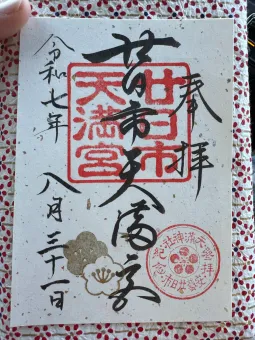 奉拝
廿日市天満宮
廿日市
天満宮
令和七年
八月三十一日